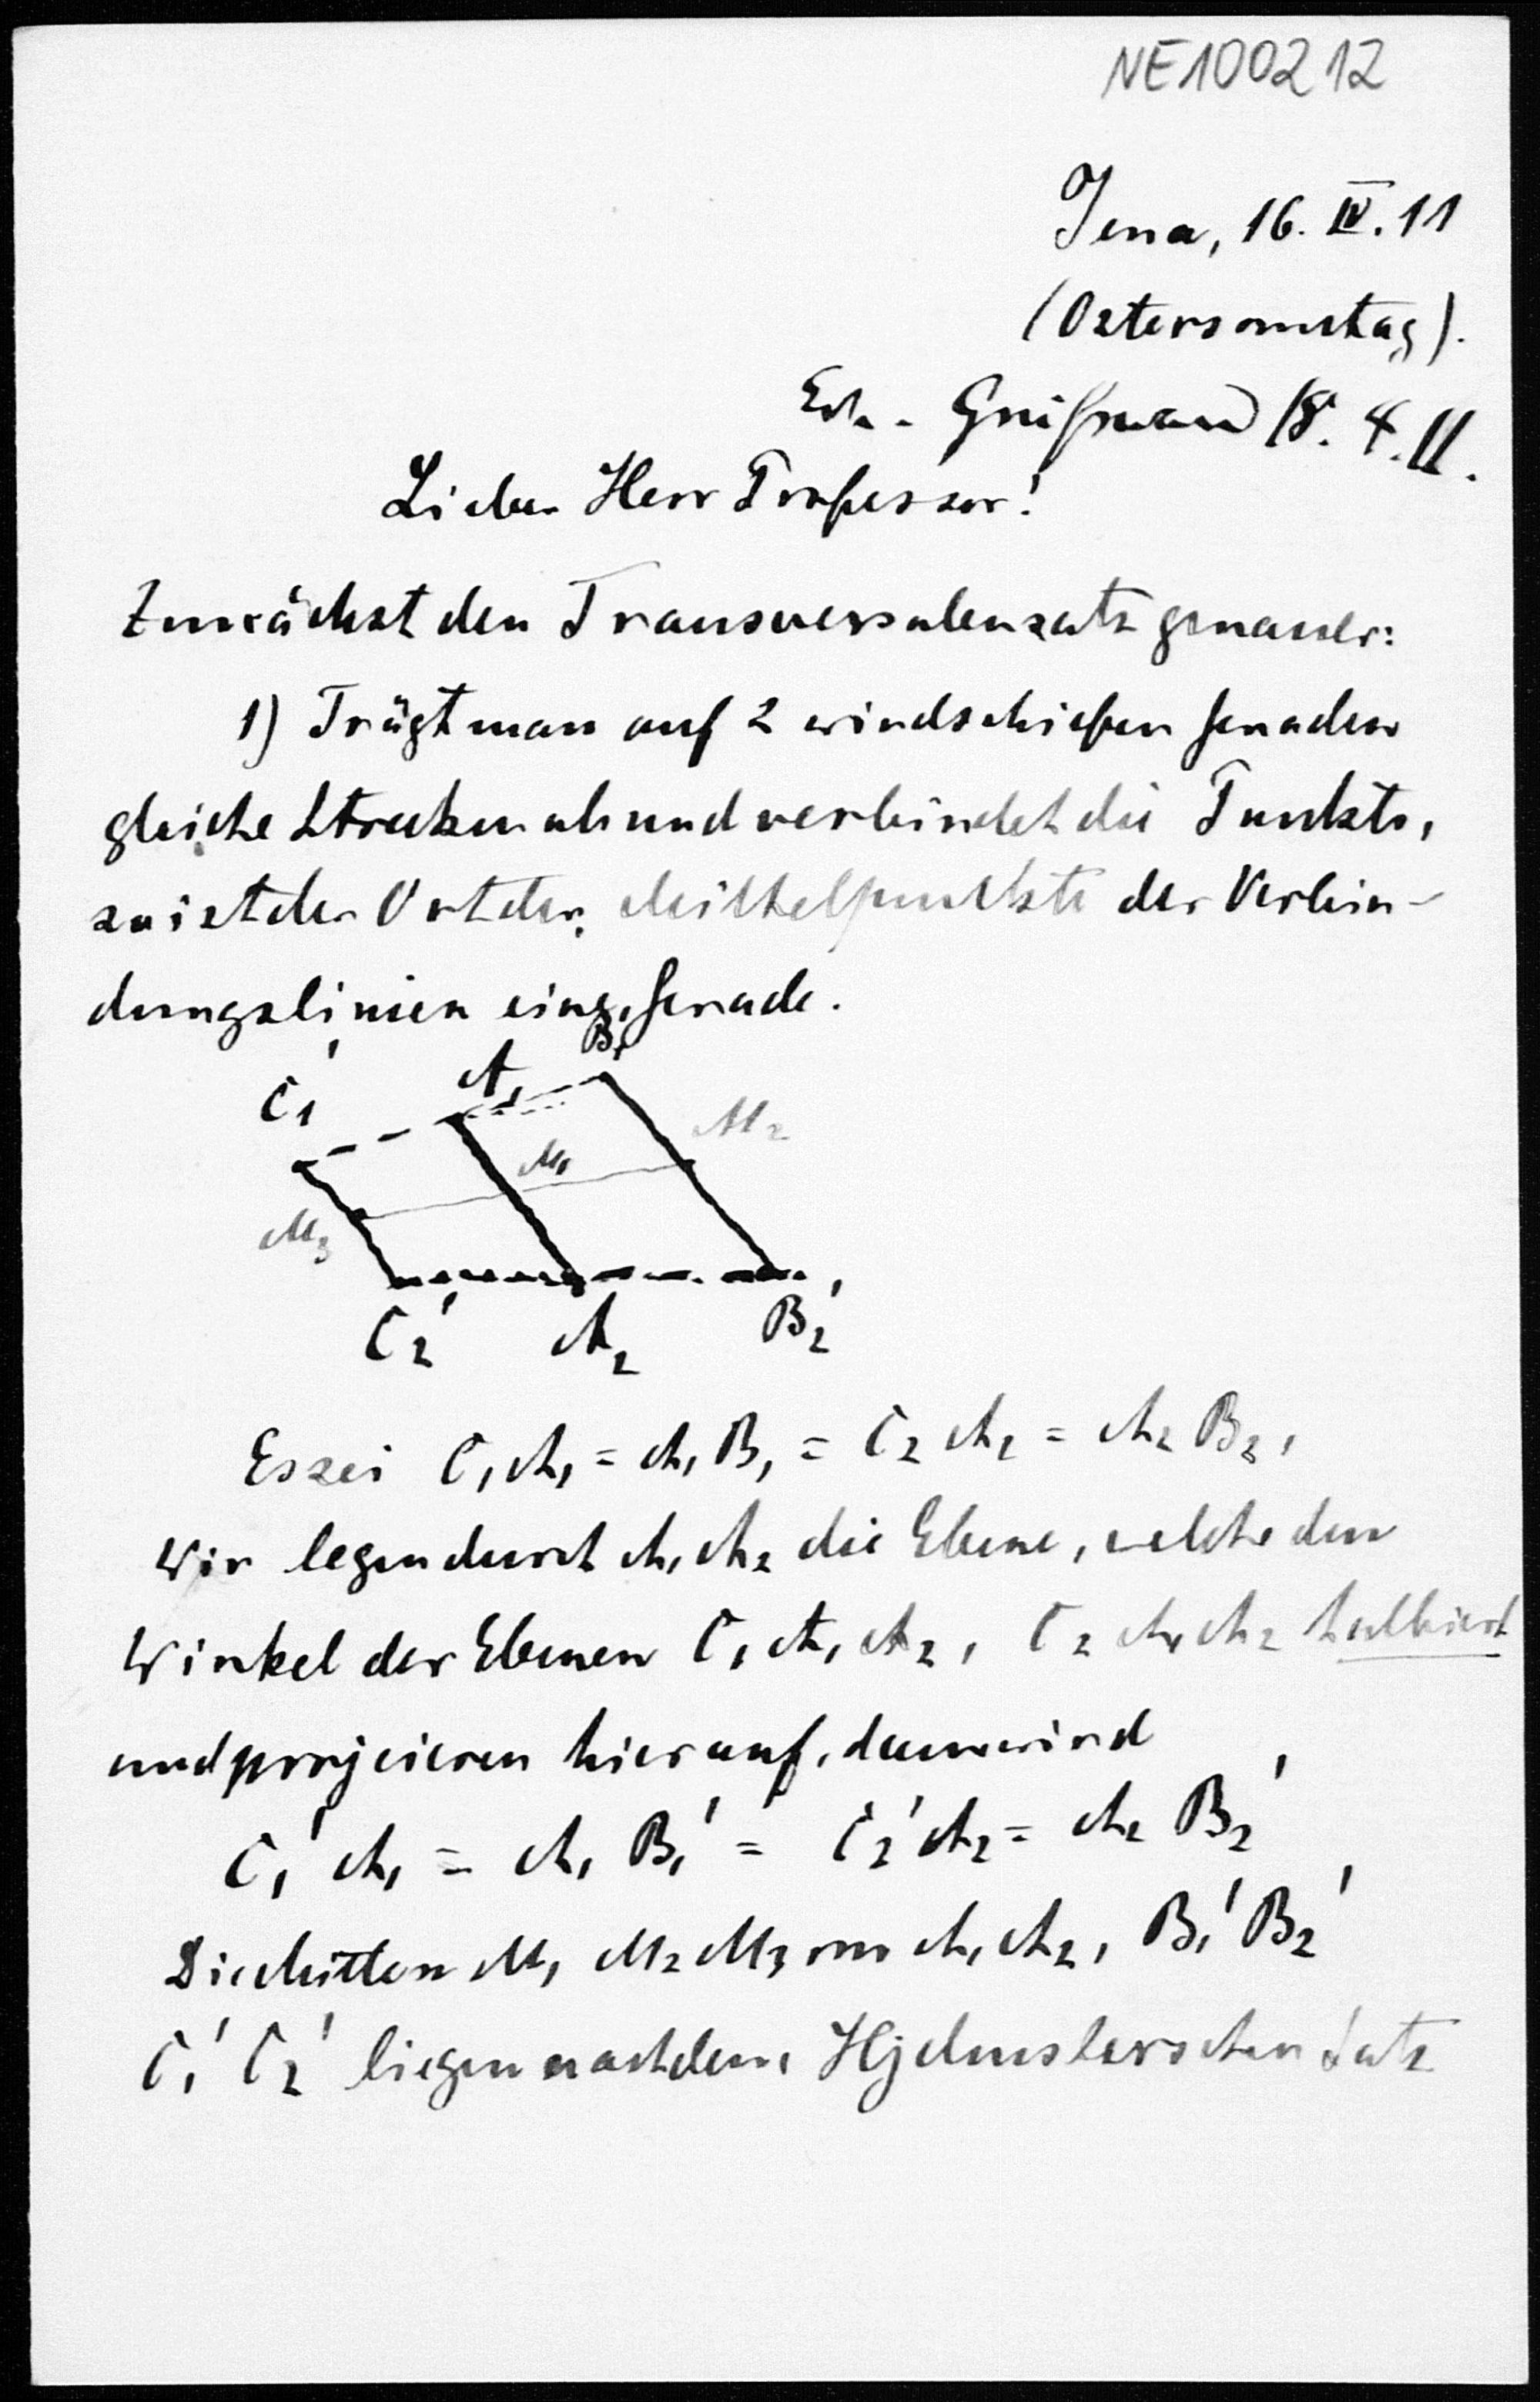 NE100212
Jena, 16. IV. 11
(Ostersonntag).
Erh. Greifswald 18. 4. 11.
Lieber Herr Professor!
Zunächst den Transversalensatz genauer:
1) Trägt man auf 2 windschiefen Geraden
gleiche Strecken ab und verbindet die Punkte,
so ist der Ort der Mittelpunkte der Verbin-
dungslinien eine Gerade.
C₁' A₁ B₁'
M₁ M₂
M₃
C₂' A₂ B₂'
Es sei C₁A₁ = A₁B₁ = C₂A₂ = A₂B₂,
Wir legen durch A₁A₂ die Ebene, welche den
Winkel der Ebenen C₁A₁A₂, C₂A₁A₂ halbiert
und projicieren hierauf, dann wird
C₁'A₁ = A₁B₁' = C₂'A₂ = A₂B₂'
Die Mitten M₁ M₂ M₃ von A₁A₂, B₁'B₂'
C₁'C₂' liegen nach dem Hjelmslevschen Satz